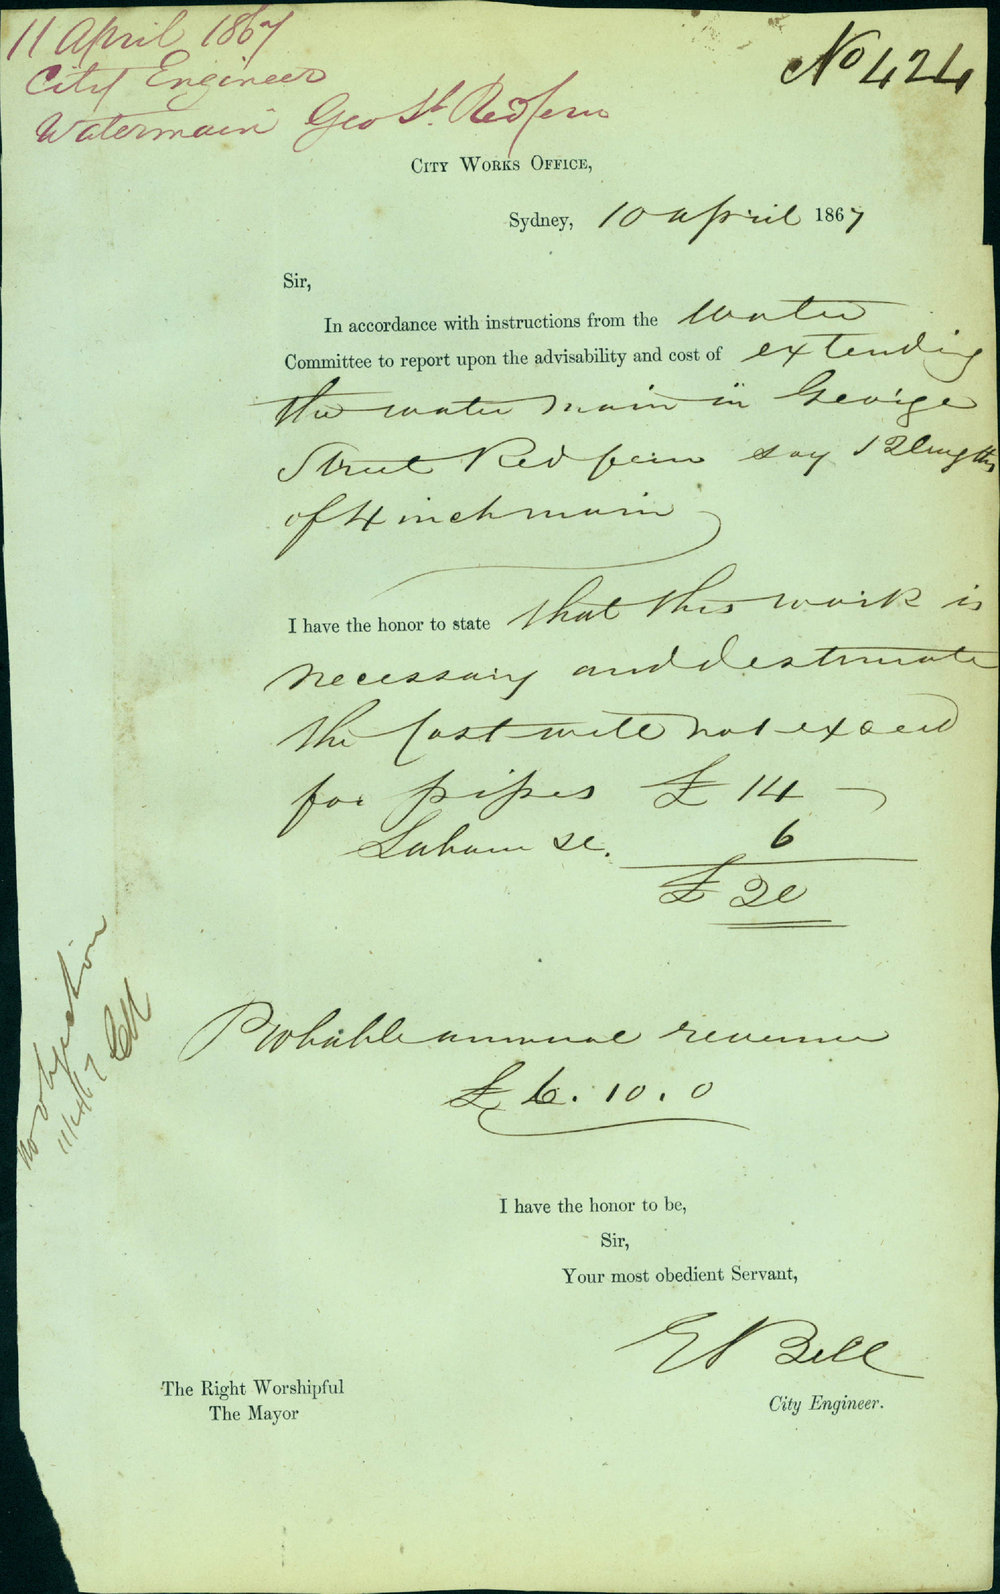 11 April 1867
City Engineer
Watermain Geo St. Redfern
No 424
City Works Office,
Sydney, 10 April 1867
Sir,
In accordance with instructions from the Water
Committee to report upon the advisability and cost of extending
the water main in George
Street Redfern say 12 lengths
of 4 inch main
I have the honor to state that this work is
necessary and I estimate
the Cost will not exceed
for pipes £ 14
Labour &c. 6
£ 20
Probable annual revenue
£ 6. 10. 0
No objection
11/4/67
I have the honor to be,
Sir,
Your most obedient Servant,
E Bell
City Engineer.
The Right Worshipful
The Mayor